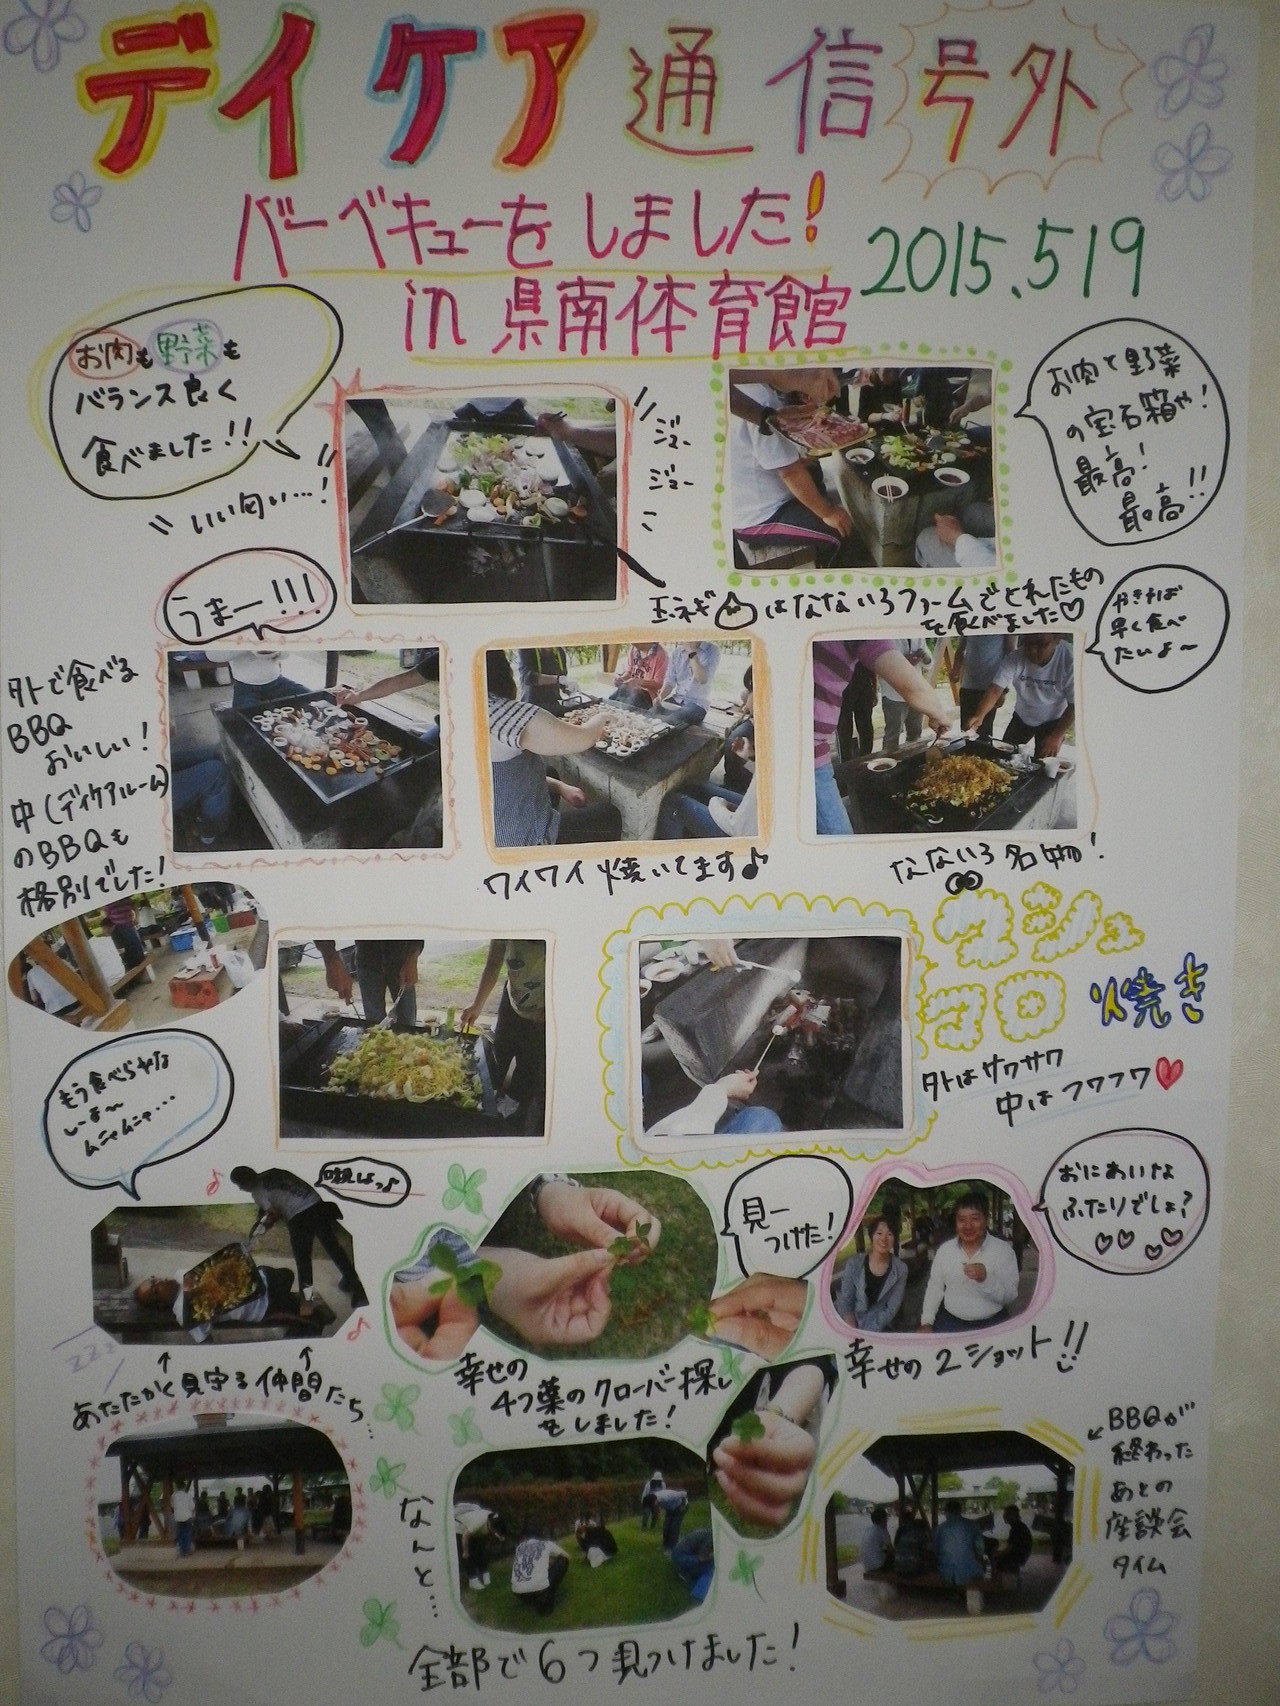 デイケア通信 号外
バーベキューをしました!
in 県南体育館
2015.5.19
お肉も野菜も
バランス良く
食べました!!
いい匂い…!
ジュー
ジュー
お肉と野菜
の宝石箱や!
最高!
最高!!
うまー!!!
玉ネギはなないろファームでとれたもの
を食べました♡
やきそば
早く食べ
たいよ〜
外で食べる
BBQ
おいしい!
中(デイケアルーム)
のBBQも
格別でした!
ワイワイ焼いてます♪
なないろ名物!
マシュ
マロ
焼き
外はサクサク
中はフワフワ♥
もう食べらんな
しーよ〜
ムニャムニャ…
♪
おにあいな
ふたりでしょ?
♡♡♡♡
見ー
つけた!
zzz
↑ ↑
あたたかく見守る仲間たち…
幸せの
4つ葉のクローバー探し
をしました!
幸せの2ショット!!
BBQが
終わった
あとの
座談会
タイム
なんと…
全部で6つ見つけました!